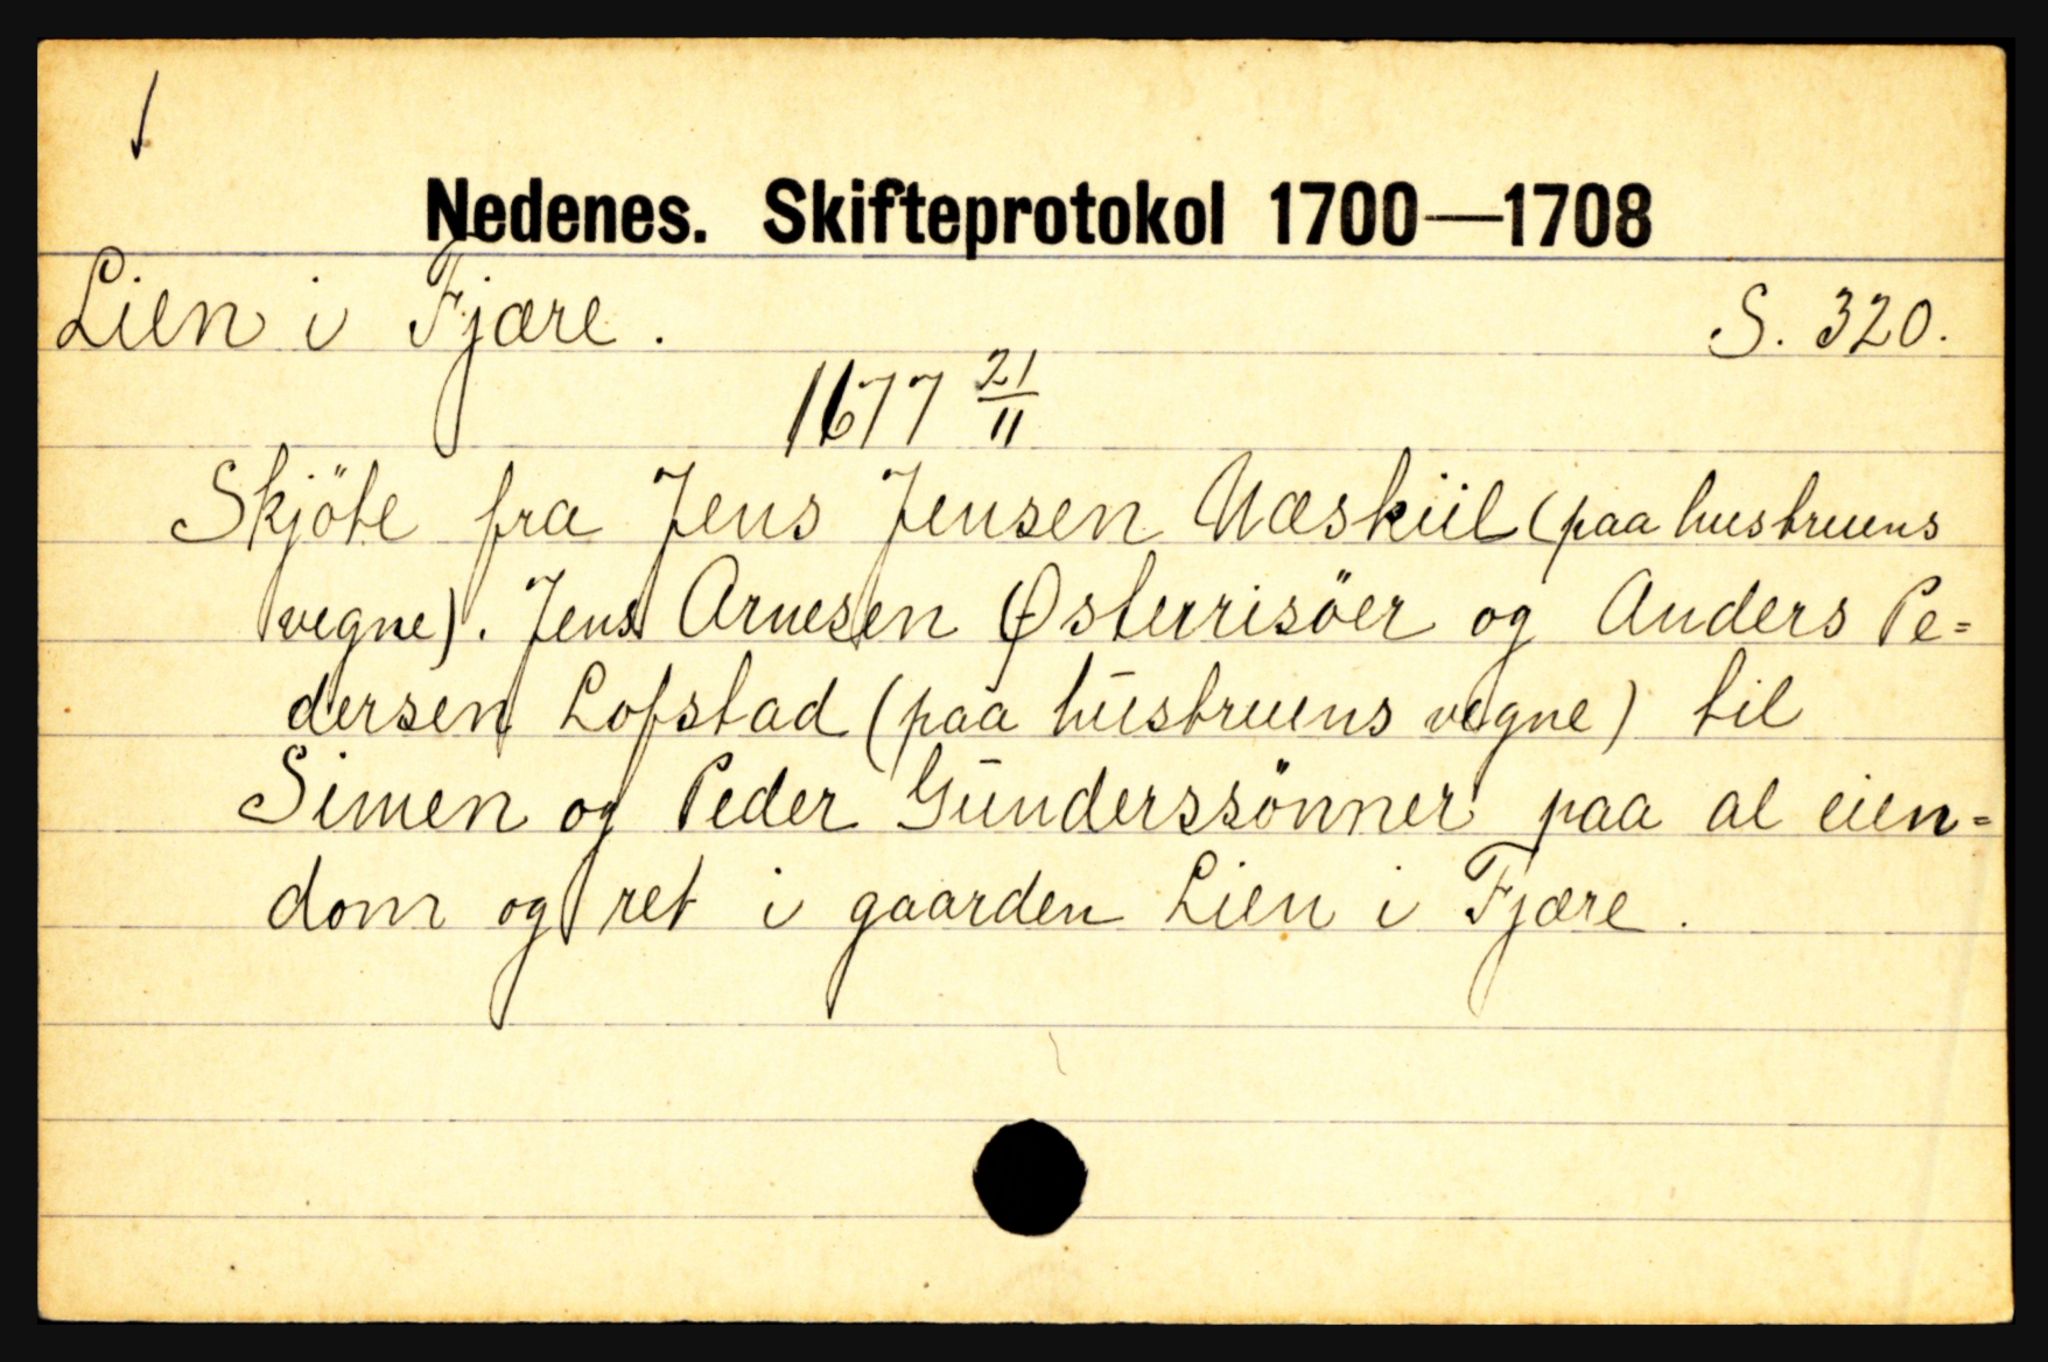 Nedenes. Skifteprotokol 1700—1708
Lien i Fjære. S. 320.
1677 21/11
Skjöte fra Jens Jensen Næskiil (paa hustruens
vegne). Jens Arnesen Østerrisöer og Anders Pe=
dersen Lofstad (paa hustruens vegne) til
Simen og Peder Gunderssönner paa al eien=
dom og ret i gaarden Lien i Fjære.